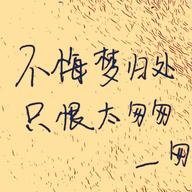 不悔梦归处
只恨太匆匆
一匆